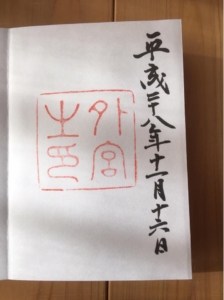 平成二十八年十一月十六日
外宮之印